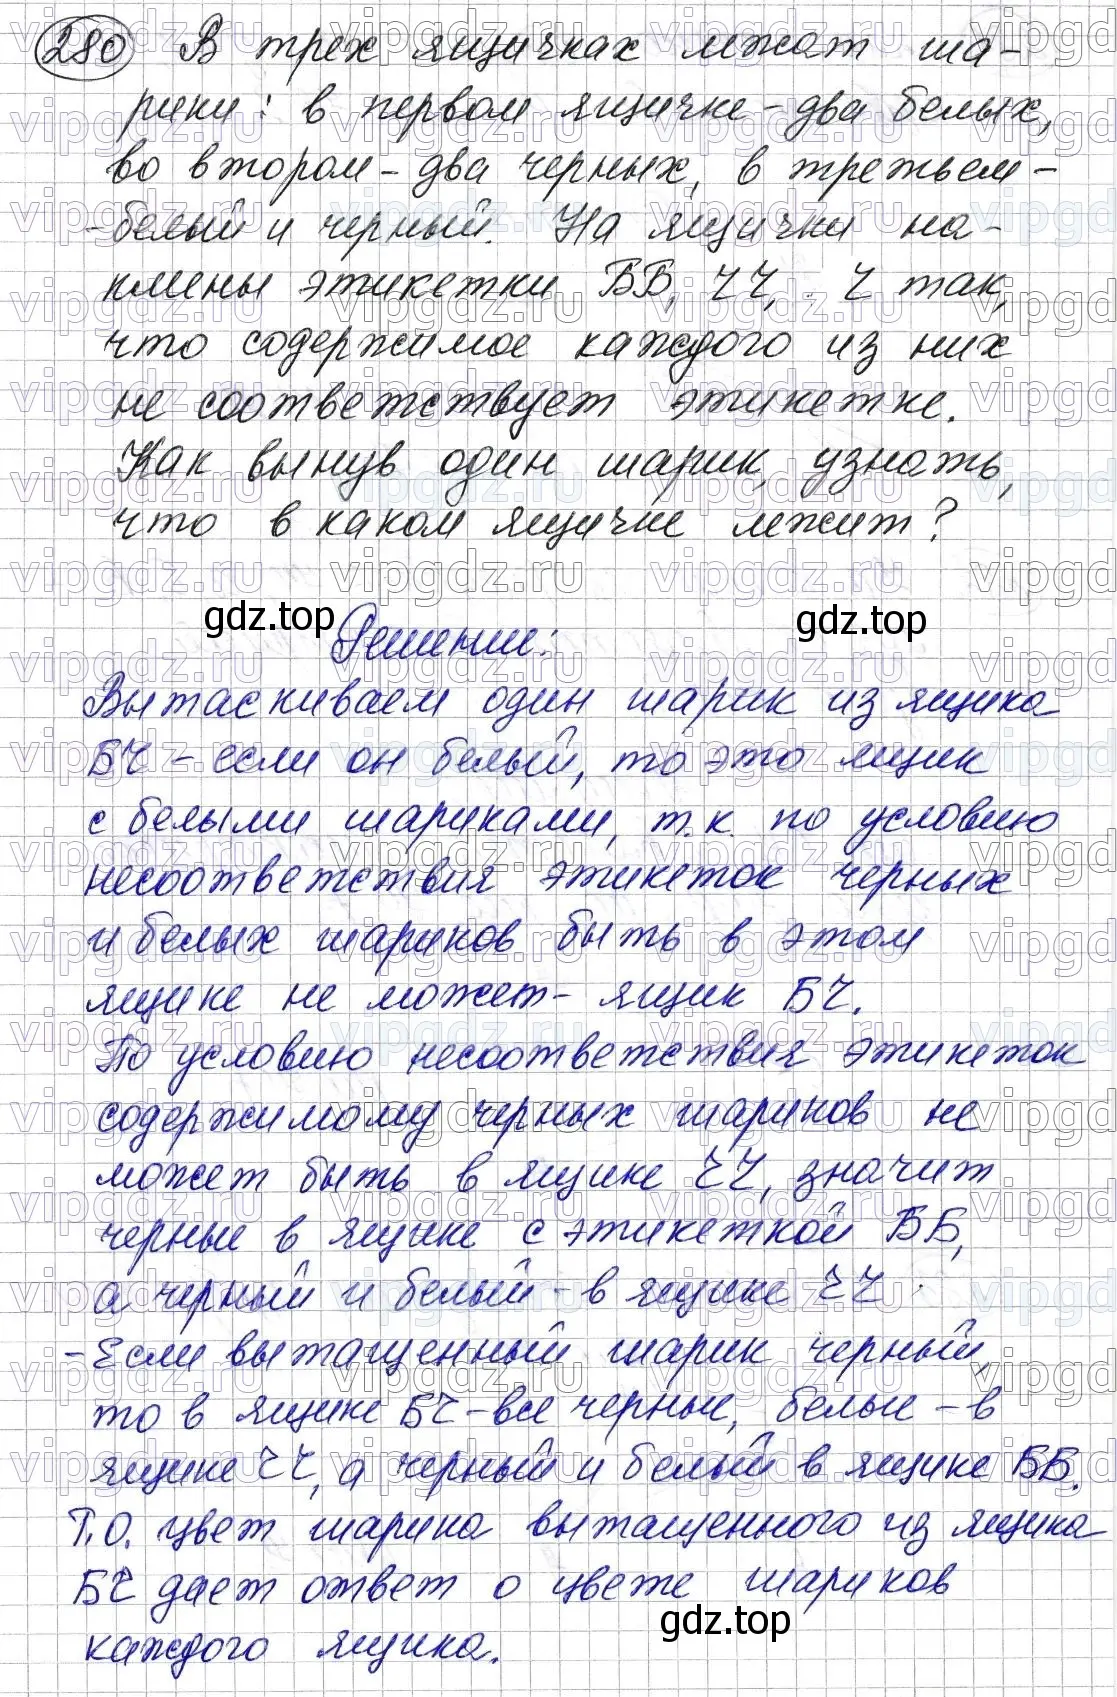 280 В трех ящичках лежат ша-
рики: в первом ящичке - два белых,
во втором - два черных, в третьем -
- белый и черный. На ящички на-
клеены этикетки ББ, ЧЧ, Ч так,
что содержимое каждого из них
не соответствует этикетке.
Как вынув один шарик, узнать,
что в каком ящичке лежит?
gdz.top Решение: gdz.top
Вытаскиваем один шарик из ящика
БЧ - если он белый, то это ящик
с белыми шариками, т.к. по условию
несоответствия этикеток черных
и белых шариков быть в этом
ящике не может - ящик БЧ.
По условию несоответствия этикеток
содержимому черных шариков не
может быть в ящике ЧЧ, значит
черные в ящике с этикеткой ББ,
а черный и белый - в ящике ЧЧ.
- Если вытащенный шарик черный,
то в ящике БЧ - все черные, белые - в
ящике ЧЧ, а черный и белый в ящике ББ.
Т.О. цвет шарика вытащенного из ящика
БЧ дает ответ о цвете шариков
каждого ящика.
gdz.top
vipgdz.ru